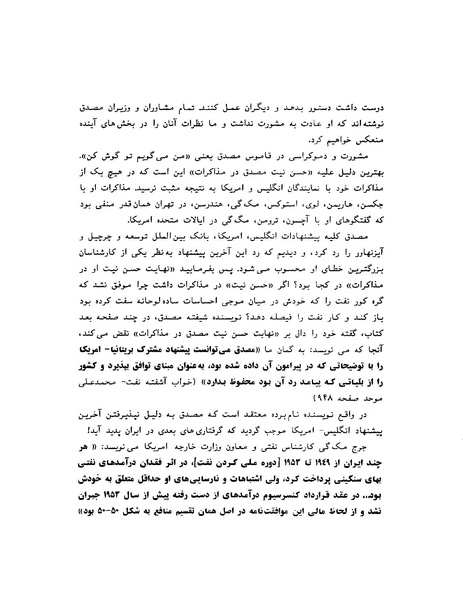 دوست داشت دستور بدهد و دیگران عمل کنند. تمام مشاوران و وزیران مصدق
نوشته‌اند که او عادت به مشورت نداشت و ما نظرات آنان را در بخش‌های آینده
منعکس خواهیم کرد.
مشورت و دموکراسی در قاموس مصدق یعنی «من می‌گویم تو گوش کن».
بهترین دلیل علیه «حسن نیت مصدق در مذاکرات» این است که در هیچ یک از
مذاکرات خود با نمایندگان انگلیس و امریکا به نتیجه مثبت نرسید. مذاکرات او با
جکسن، هاریمن، لوی، استوکس، مک‌گی، هندرسن، در تهران همان‌قدر منفی بود
که گفتگوهای او با آچسون، ترومن، مک‌گی در ایالات متحده امریکا.
مصدق کلیه پیشنهادات انگلیس، امریکا، بانک بین‌الملل توسعه و چرچیل و
آیزنهاور را رد کرد، و دیدیم که رد این آخرین پیشنهاد به‌نظر یکی از کارشناسان
بزرگترین خطای او محسوب می‌شود. پس بفرمایید «نهایت حسن نیت او در
مذاکرات» در کجا بود؟ اگر «حسن نیت» در مذاکرات داشت چرا موفق نشد که
گره کور نفت را که خودش در میان موجی احساسات ساده‌لوحانه سفت کرده بود
باز کند و کار نفت را فیصله دهد؟ نویسنده شیفته مصدق، در چند صفحه بعد
کتاب، گفته خود را دال بر «نهایت حسن نیت مصدق در مذاکرات» نقض می‌کند،
آنجا که می نویسد: به گمان ما «مصدق می‌توانست پیشنهاد مشترک بریتانیا- امریکا
را با توضیحاتی که در پیرامون آن داده شده بود، به‌عنوان مبنای توافق بپذیرد و کشور
را از بلیاتی که پیامد رد آن بود محفوظ بدارد» (خواب آشفته نفت- محمدعلی
موحد صفحه ۹۴۸)
در واقع نویسنده نام‌برده معتقد است که مصدق به دلیل نپذیرفتن آخرین
پیشنهاد انگلیس- امریکا موجب گردید که گرفتاری‌های بعدی در ایران پدید آید!
جرج مک‌گی کارشناس نفتی و معاون وزارت خارجه امریکا می‌نویسد: « هر
چند ایران از ۱۹۴۹ تا ۱۹۵۳ [دوره ملی کردن نفت]، در اثر فقدان درآمدهای نفتی
بهای سنگینی پرداخت کرد، ولی اشتباهات و نارسایی‌های او حداقل متعلق به خودش
بود... در عقد قرارداد کنسرسیوم درآمدهای از دست رفته پیش از سال ۱۹۵۳ جبران
نشد و از لحاظ مالی این موافقت‌نامه در اصل همان تقسیم منافع به شکل ۵۰-۵۰ بود»